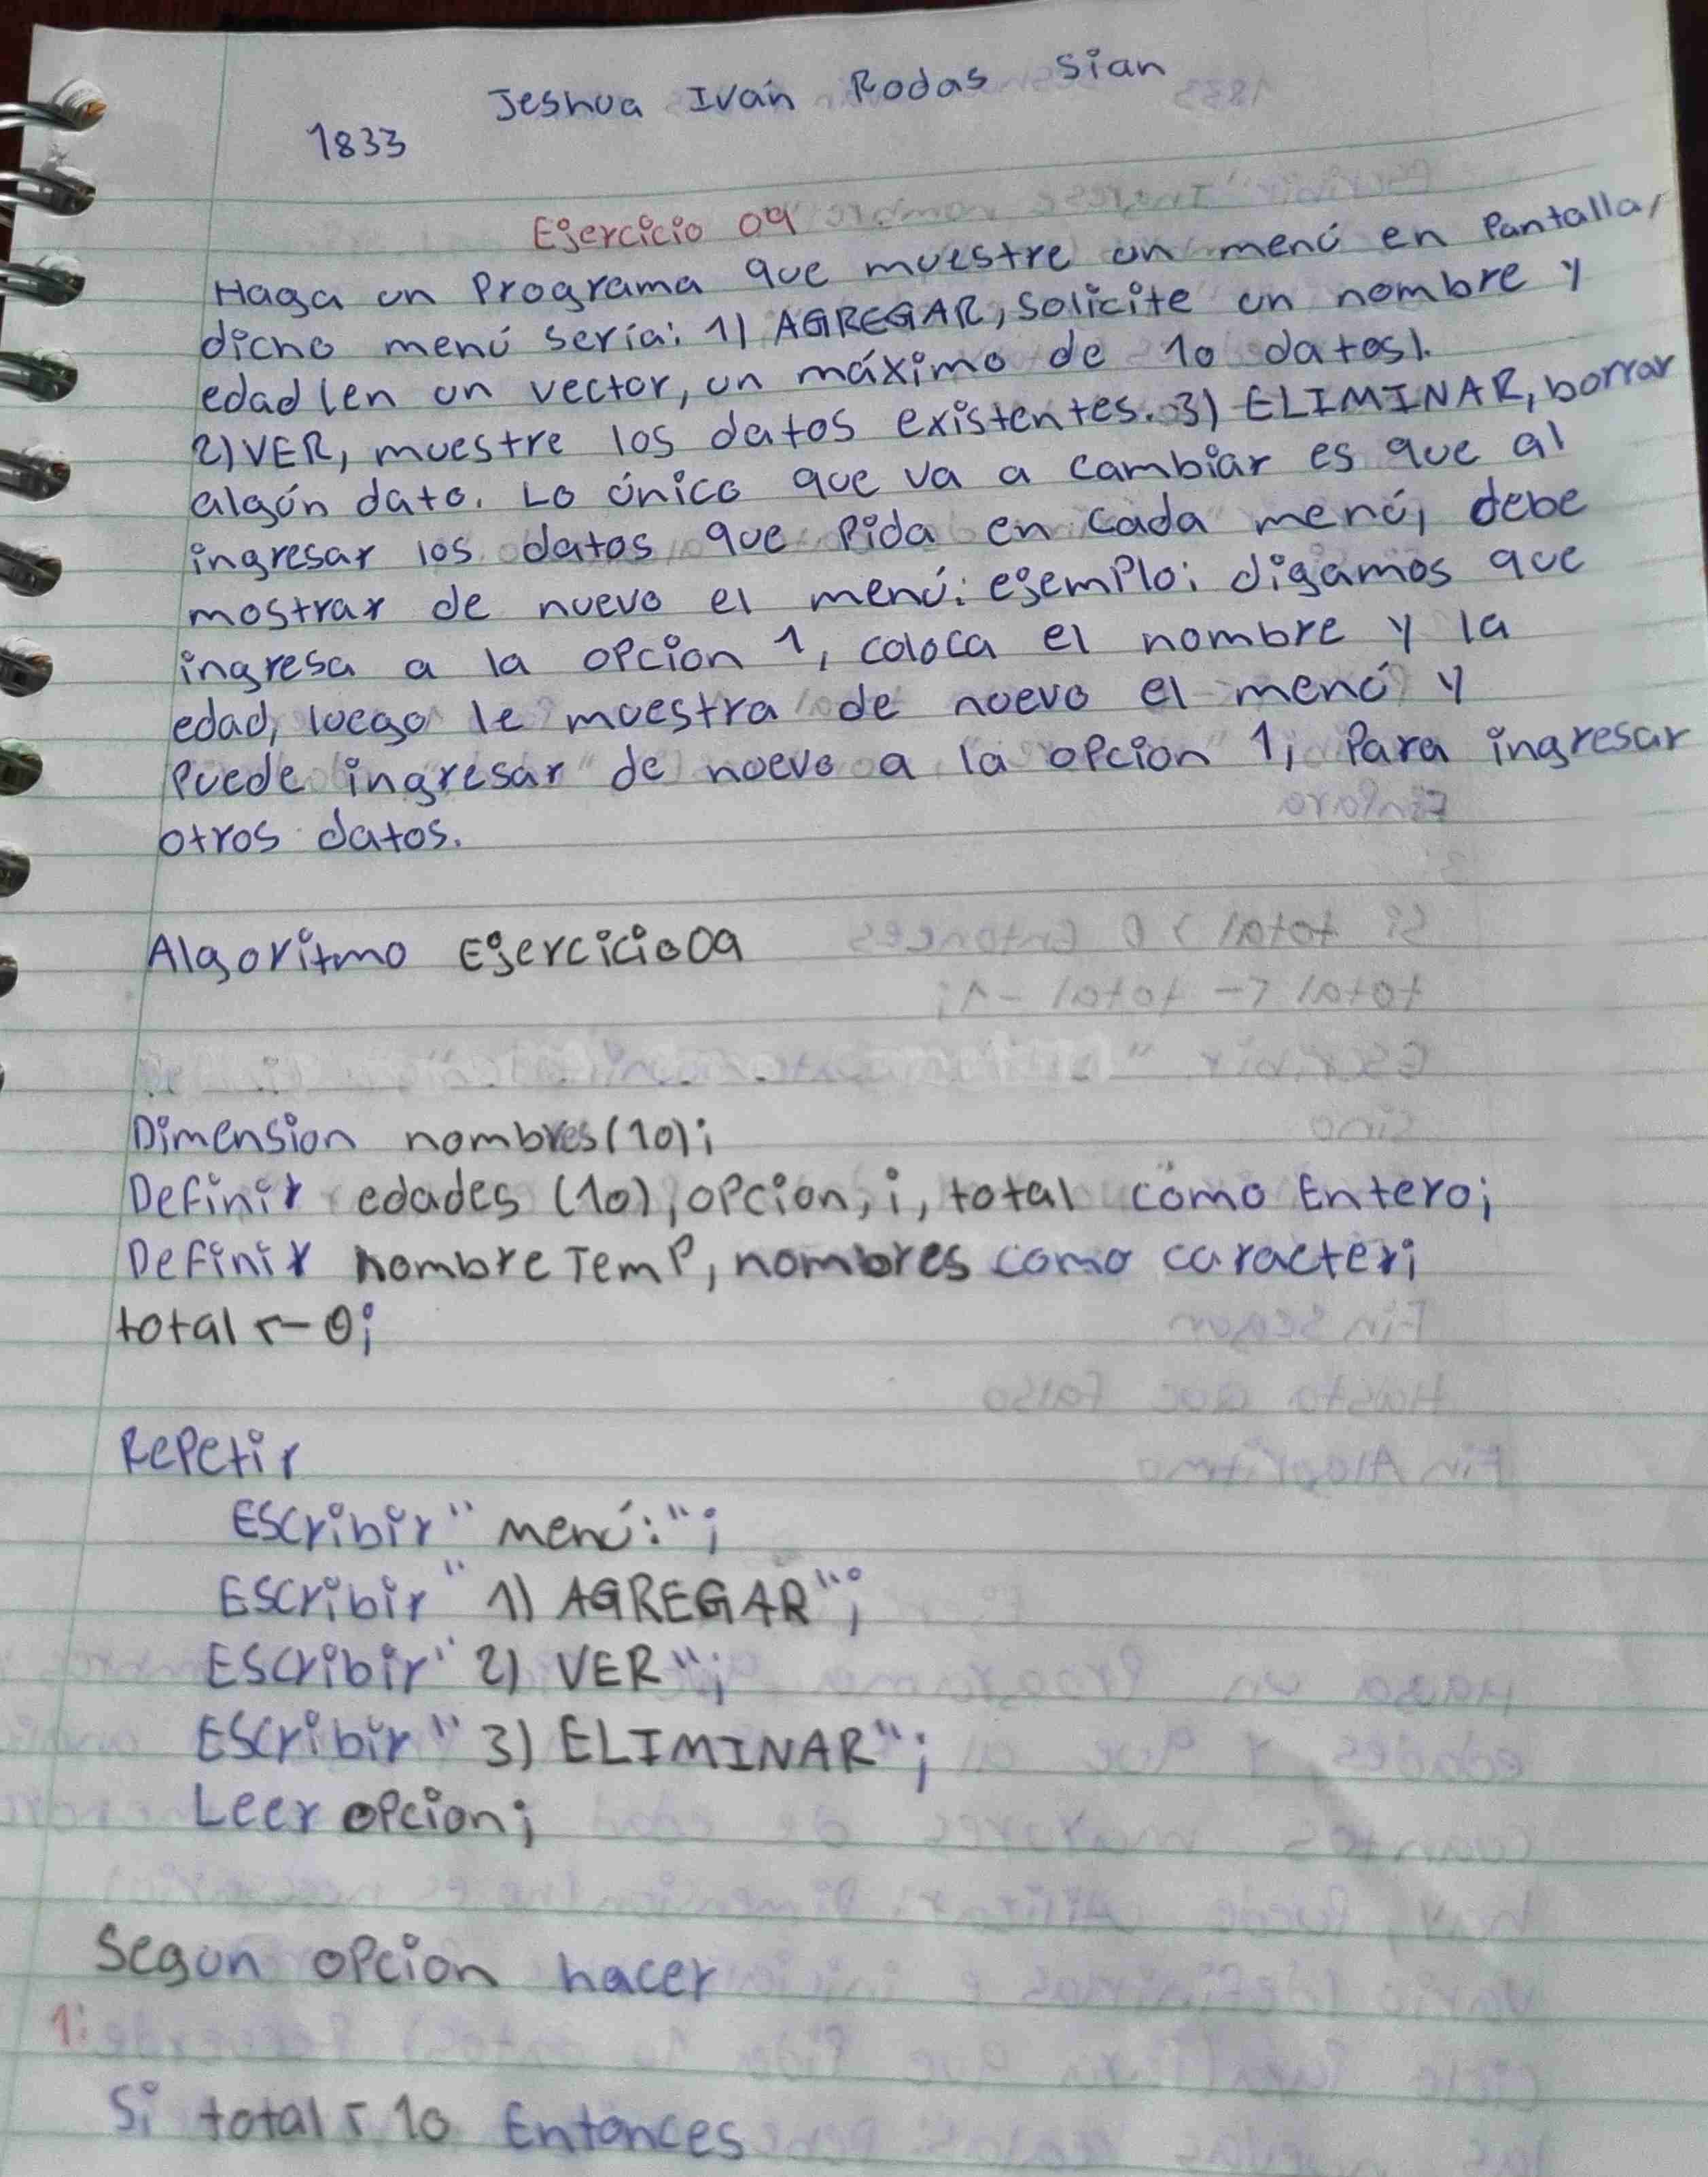 Jeshua Iván Rodas Sian
1833
Ejercicio 09
Haga un Programa que muestre un menú en Pantalla,
dicho menú sería: 1) AGREGAR, solicite un nombre y
edad (en un vector, un máximo de 10 datos).
2) VER, muestre los datos existentes. 3) ELIMINAR, borrar
algún dato. Lo único que va a cambiar es que al
ingresar los datos que Pida en cada menú, debe
mostrar de nuevo el menú: ejemplo: digamos que
ingresa a la opcion 1, coloca el nombre y la
edad, luego le muestra de nuevo el menú y
Puede ingresar de nuevo a la opcion 1, Para ingresar
otros datos.
Algoritmo Ejercicio09
Dimension nombres(10);
Definir edades (10), opcion, i, total como Entero;
Definir nombreTemp, nombres como caracter;
total <- 0;
Repetir
Escribir "menú:";
Escribir "1) AGREGAR";
Escribir "2) VER";
Escribir "3) ELIMINAR";
Leer opcion;
Segun opcion hacer
1:
Si total < 10 Entonces